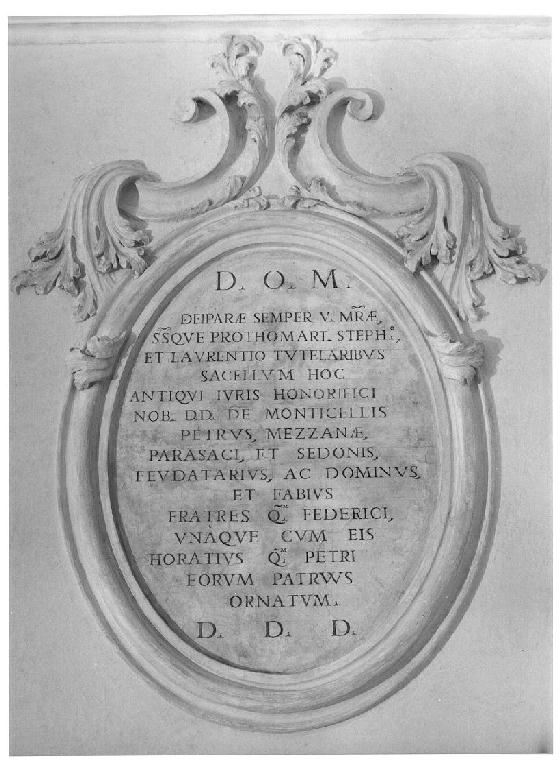 D. O. M.
DEIPARÆ SEMPER V. MR̃Æ,
SS̃QVE PROTHOMART. STEPH.º,
ET LAVRENTIO TVTELARIBVS
SACELLVM HOC
ANTIQVI IVRIS HONORIFICI
NOB. D.D. DE MONTICELLIS
PETRVS, MEZZANÆ,
PARASACI, ET SEDONIS,
FEVDATARIVS, AC DOMINVS,
ET FABIVS
FRATRES Q.ᴹ FEDERICI,
VNAQVE CVM EIS
HORATIVS Q.ᴹ PETRI
EORVM PATRVVS
ORNATVM.
D. D. D.